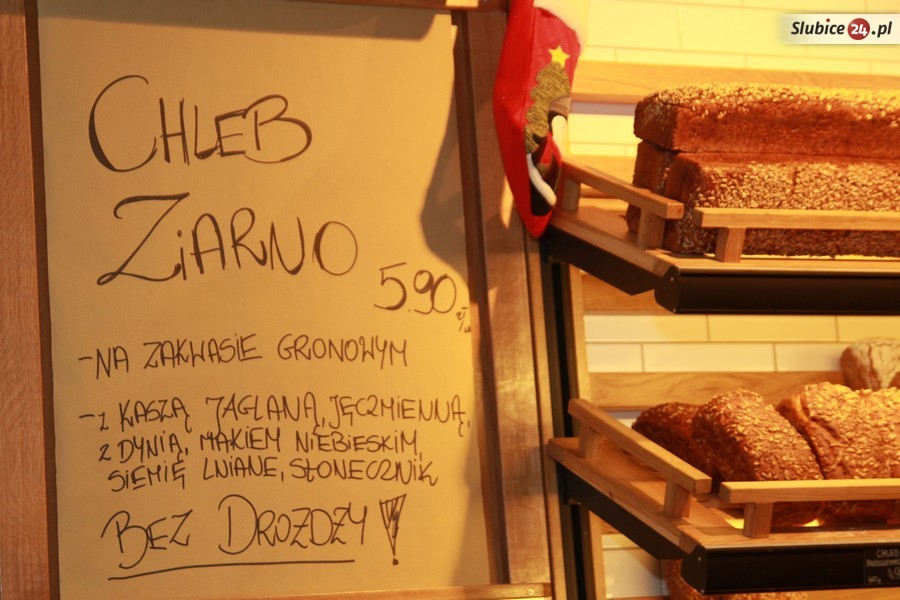 Slubice24.pl
CHLEB
ZIARNO
5.90
-NA ZAKWASIE GRONOWYM
-Z KASZĄ JAGLANĄ, JĘCZMIENNĄ,
Z DYNIĄ, MAKIEM NIEBIESKIM,
SIEMIĘ LNIANE, SŁONECZNIK
BEZ DROŻDŻY!
CHLEB